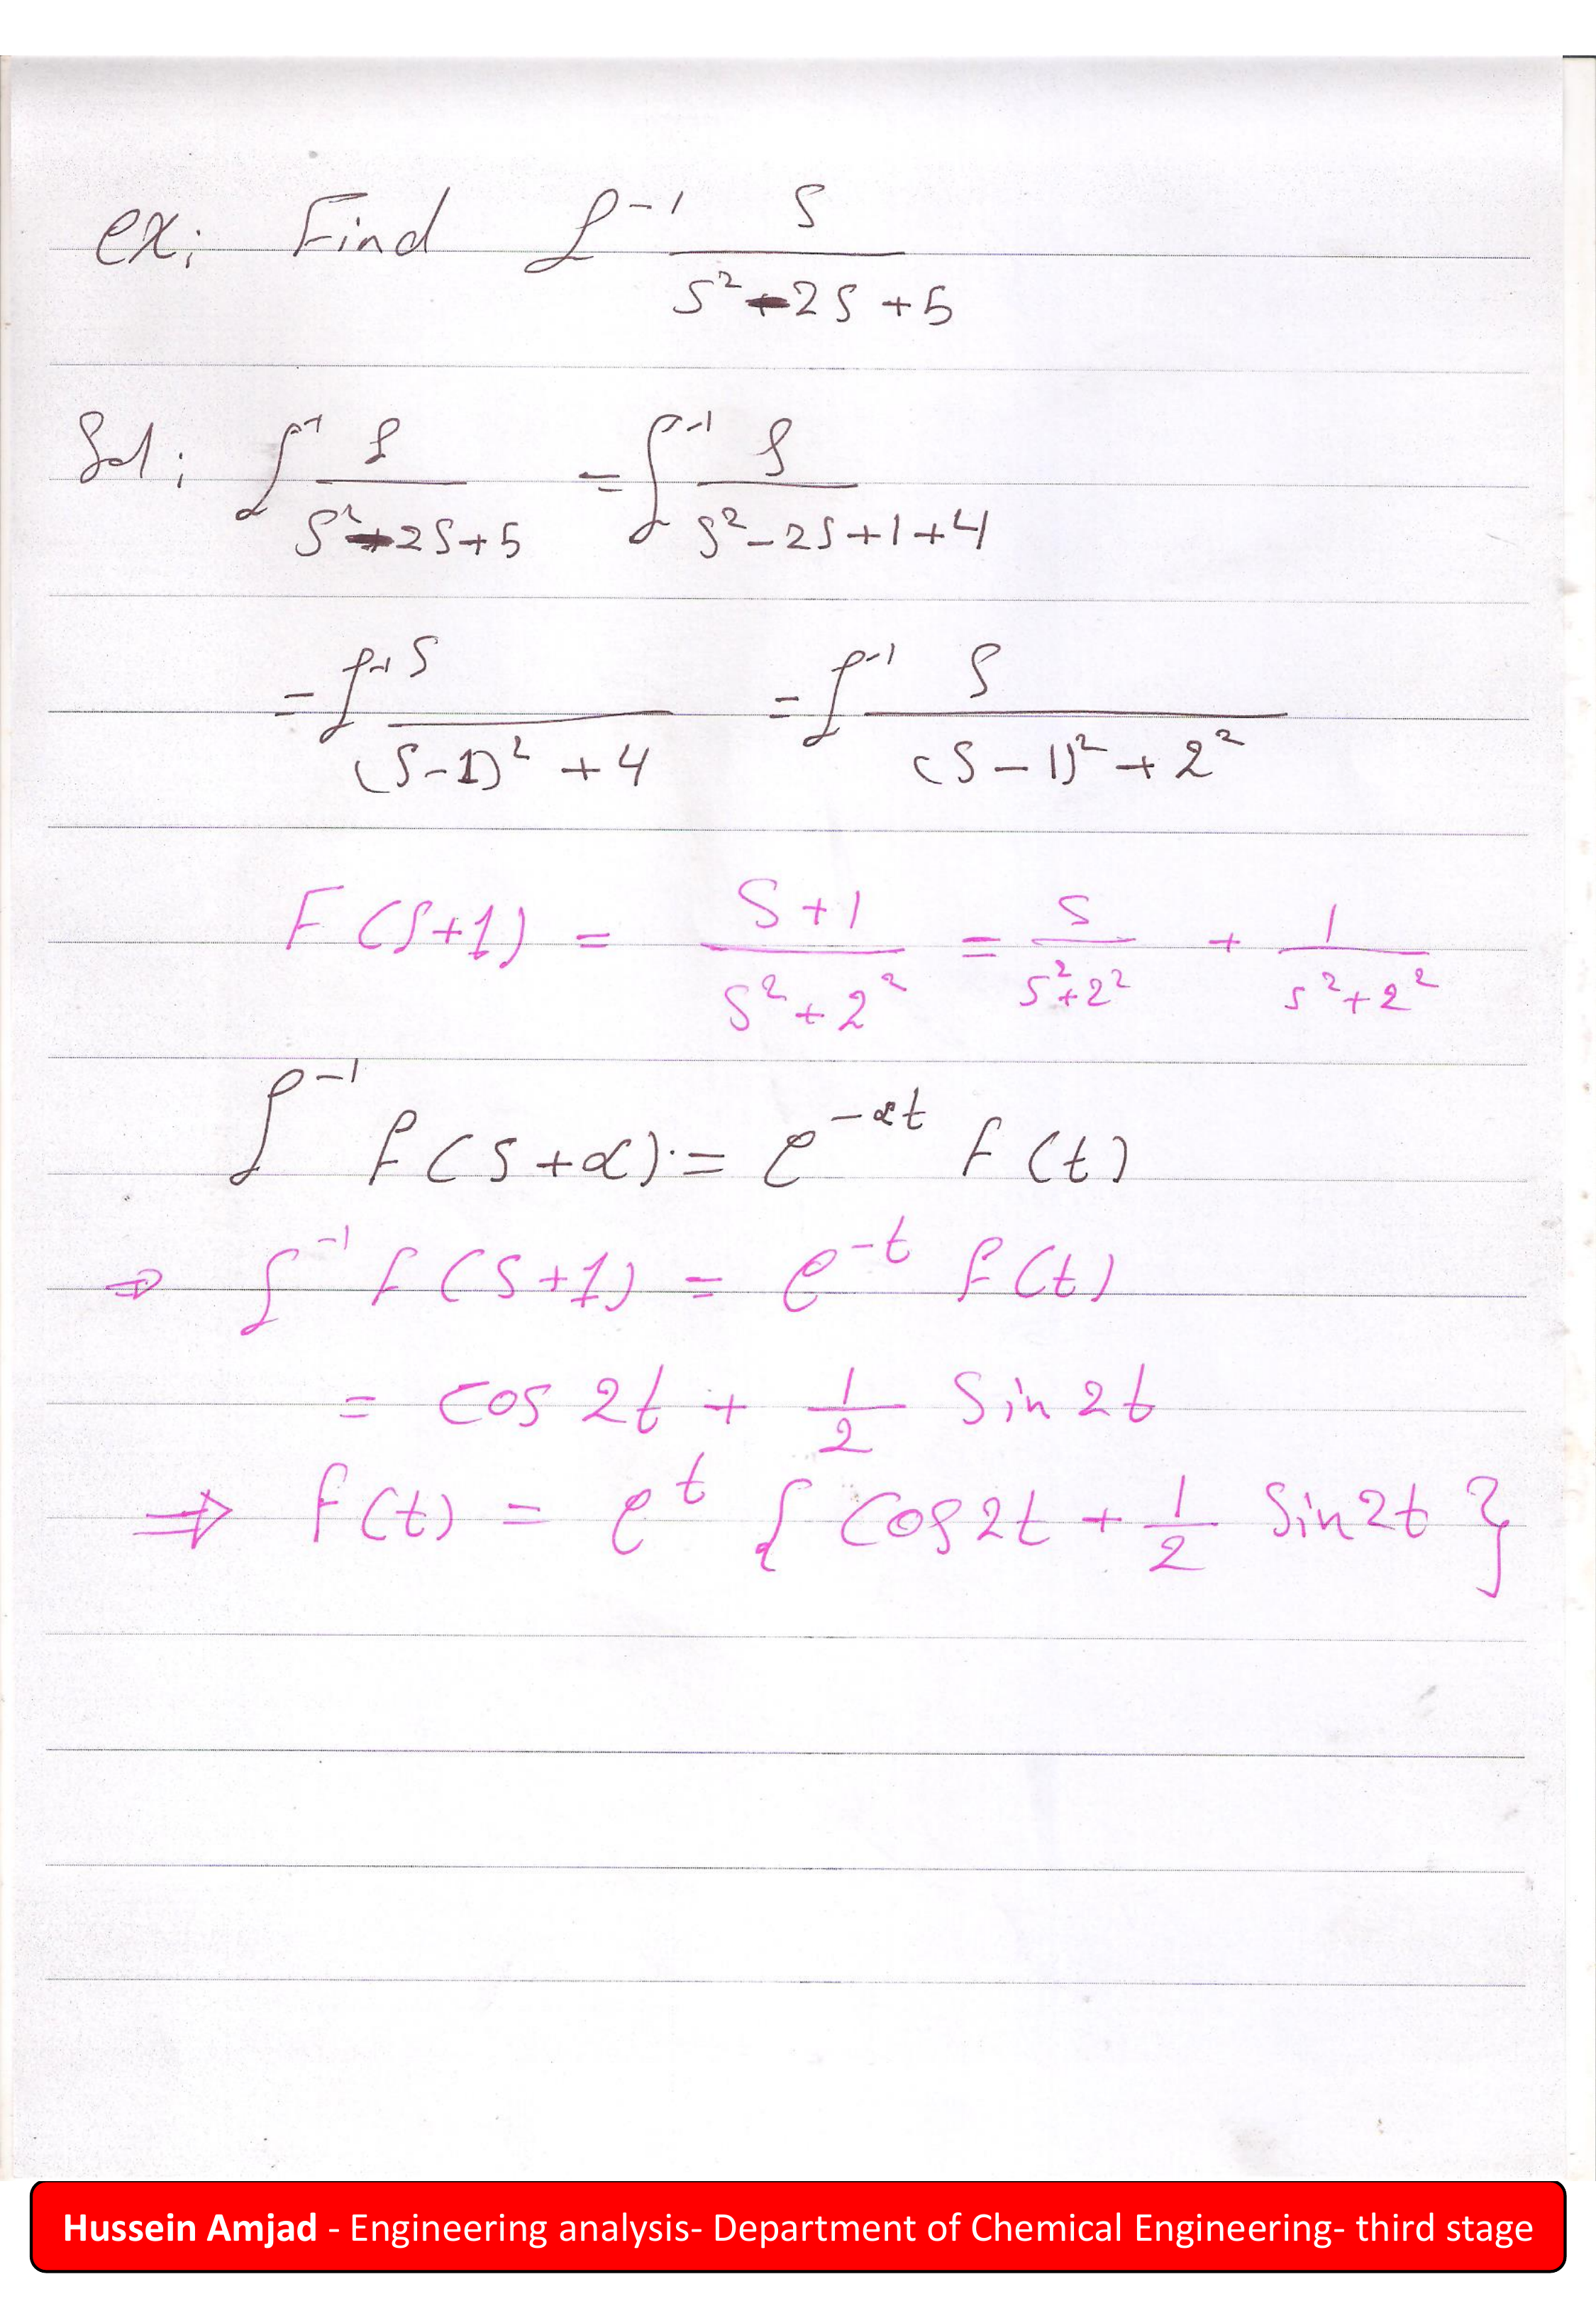 ex; Find ℒ⁻¹ S / (S² - 2S + 5)
Sol; ℒ⁻¹ S / (S² - 2S + 5) = ℒ⁻¹ S / (S² - 2S + 1 + 4)
= ℒ⁻¹ S / ((S - 1)² + 4) = ℒ⁻¹ S / ((S - 1)² + 2²)
F(S+1) = (S + 1) / (S² + 2²) = S / (S² + 2²) + 1 / (S² + 2²)
ℒ⁻¹ F(S + α) = e^(-αt) F(t)
⇒ ℒ⁻¹ F(S + 1) = e^(-t) F(t)
= cos 2t + 1/2 Sin 2t
⇒ F(t) = e^t { Cos 2t + 1/2 Sin 2t }
Hussein Amjad - Engineering analysis- Department of Chemical Engineering- third stage